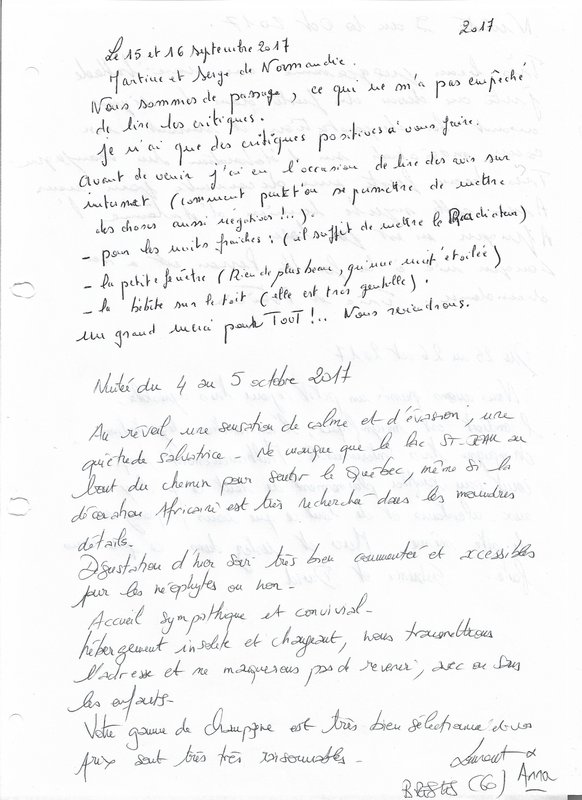 2017
Le 15 et 16 septembre 2017
Martine et Serge de Normandie.
Nous sommes de passage, ce qui ne m'a pas empêché
de lire les critiques.
Je n'ai que des critiques positives à vous faire.
Avant de venir j'ai eu l'occasion de lire des avis sur
internet (comment peut t'on se permettre de mettre
des choses aussi négatives !..).
- pour les nuits fraîches : (il suffit de mettre le Radiateur)
- la petite fenêtre (Rien de plus beau, qu'une nuit étoilée)
- la bébite sur le toit (elle est très gentille).
Un grand merci pour TOUT !.. Nous reviendrons.
Nuitée du 4 au 5 octobre 2017
Au réveil, une sensation de calme et d'évasion, une
quiétude salvatrice - Ne manque que le lac St JEAN au
bout du chemin pour sentir le Québec, même si la
décoration Africaine est très recherché dans les moindres
détails.
Dégustation d'hier soir très bien commentée et accessibles
pour les néophytes ou non -
Accueil sympathique et convivial -
hébergement insolite et changeant, nous transmettrons
l'adresse et ne manquerons pas de revenir, avec ou sans
les enfants -
Votre gamme de champagne est très bien sélectionné et vos
prix sont très très raisonnables -
Laurent &
(60) Anna